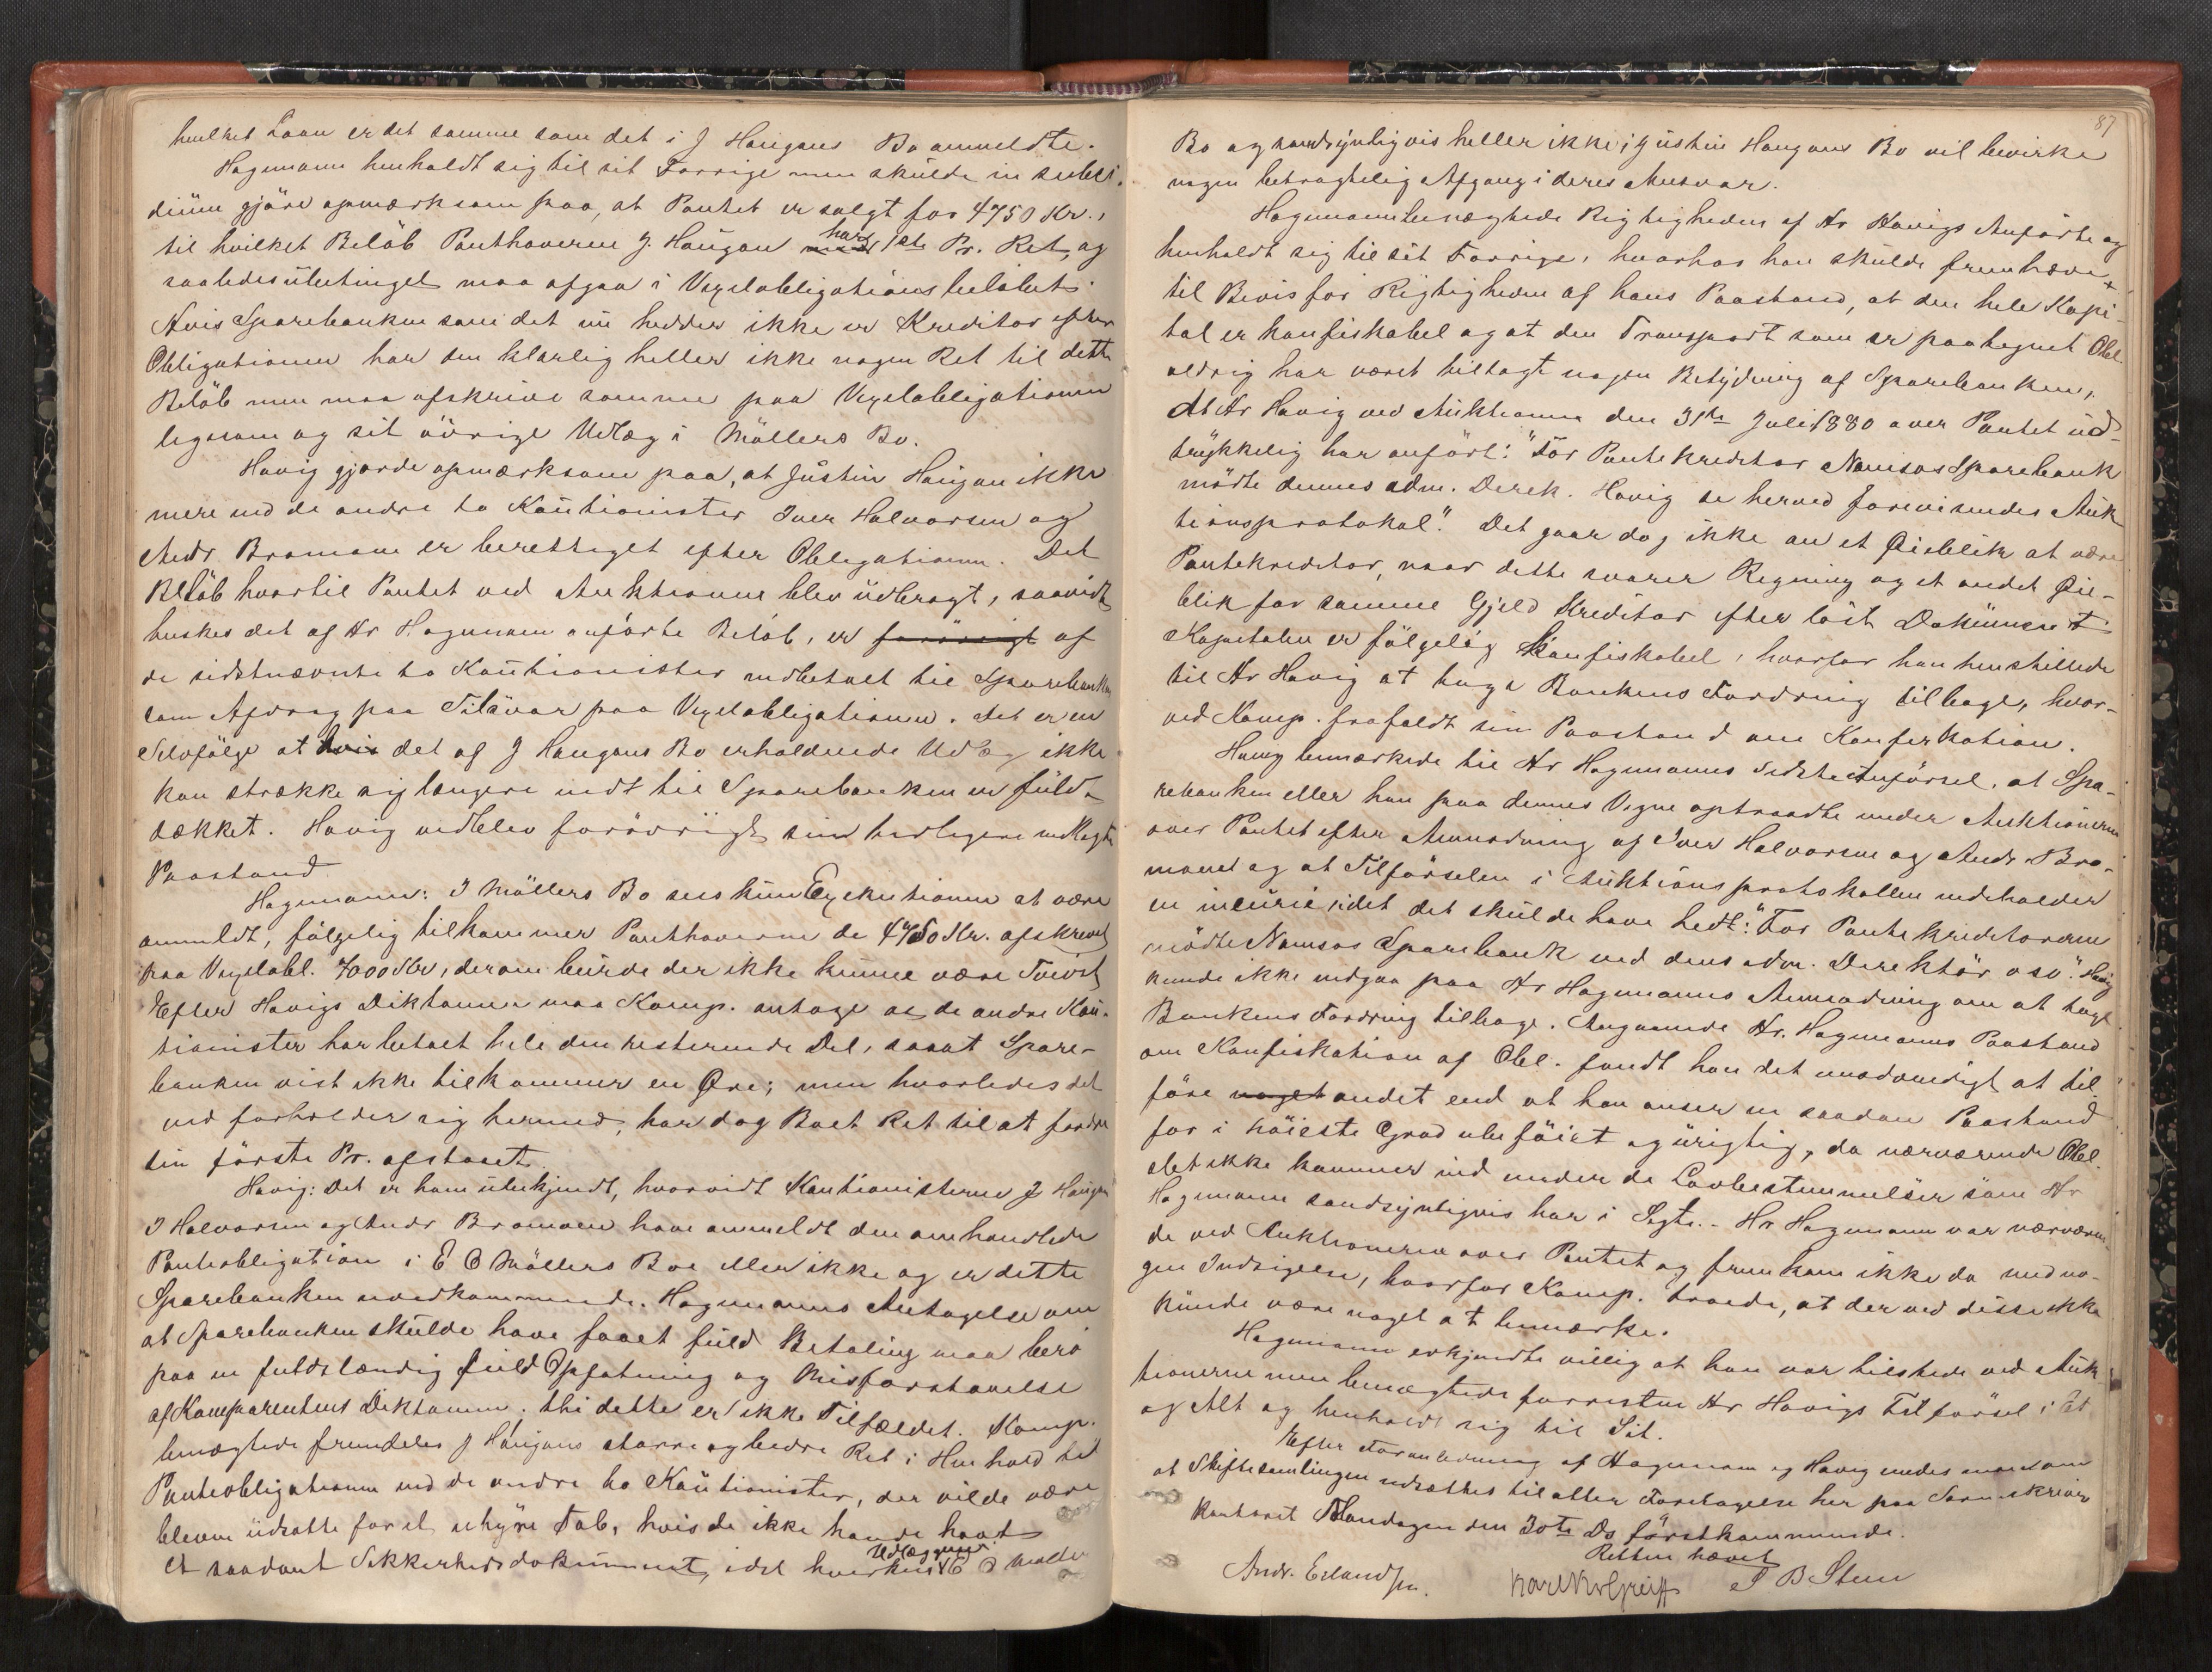 hvilket Laan er det samme som det i J Haugans Bo anmeldte.
Hagemann henholdt sig til sit Forrige men skulde in subsi-
dium gjöre opmærksom paa, at Pantet er solgt for 4750 Kr.,
til hvilket Belöb Panthaverne J. Haugan har 1ste Pr. Ret, og
saaledes ubetinget maa afgaa i Vexelobligationsbelöbet.
Hvis Sparebanken som det nu hedder ikke er Kreditor efter
Obligationen har den klarlig heller ikke nogen Ret til dette
Belöb men maa afskrive samme paa Vexelobligationen
ligesom og sit övrige Udlæg i Möllers Bo.
Havig gjorde opmærksom paa, at Justin Haugan ikke
mere end de andre to Kautionister Iver Halvorsen og
Andr. Bromoen er berettiget efter Obligationen. Det
Belöb hvortil Pantet ved Auktionen blev udbragt, saavidt
huskes det af Hr Hagemann anförte Belöb, er forövrigt af
de sidstnævnte to Kautionister indbetalt til Sparebanken
som Afdrag paa Tilsvar paa Vexelobligationen. Det er en
Selvfölge at hvis det af J Haugans Bo erholdende Udlæg ikke
kan strække sig længere indt til Sparebanken er fuld-
dækket. Havig vedblev forövrigt sin tidligere nedlagte
Paastand
Hagemann: I Möllers Bo sees kun Exekutionen at være
anmeldt, fölgelig tilkommer Panthaverne de 4750 Kr. afskrevet
paa Vexelobl. 7000 Kr, derom burde der ikke kunne være Tvivl
Efter Havigs Diktamen maa Komp. antage at de andre Kau-
tionister har betalt hele den resterende Del, saaat Spare-
banken vist ikke tilkommer en Öre; men hvorledes det
end forholder sig hermed, har dog Boet Ret til at fordre
sin förste Pr. afstaaet.
Havig: Det er ham ubekjendt, hvorvidt Kautionisterne J Haugan
I Halvorsen og Andr Bromoen have anmeldt den omhandlede
Panteobligation i E O Möllers Boe eller ikke og er dette
Sparebanken uvedkommende. Hagemanns Antagelse om
at Sparebanken skulde have faaet fuld Betaling maa bero
paa en fuldstændig feil Opfatning og Misforstaaelse
af Komparentens Diktamen. thi dette er ikke Tilfældet. Komp.
benægtede fremdeles J Haugans större og bedre Ret i Henhold til
Panteobligationen end de andre to Kautionister, der vilde være
bleven udsatte for et uhyre Tab, hvis de ikke havde havt
Udlæggene i
et saadant Sikkerhedsdokument, idet hverken E O Möller
87
Bo og sandsynligvis heller ikke i Justin Haugans Bo vil bevirke
nogen betragtelig Afgang i deres Ansvar.
Hagemann benægtede Rigtigheden af Hr Havigs Anförte og
henholdt sig til sit Forrige, hvorhos han skulde fremhæve
til Bevis for Rigtigheden af hans Paastand, at den hele Kapi-
tal er konfiskabel og at den Transport som er paategnet Obl.
aldrig har været tillagt nogen Betydning af Sparebanken,
At Hr Havig ved Auktionen den 31te Juli 1880 over Pantet ud-
trykkelig har anfört: "För Pantekreditor Namsos Sparebank
mödte dennes adm. Direk. Havig se herved foreviisendes Auk
tionsprotokol." Det gaar dog ikke an et Öieblik at være
Pantekreditor, naar dette svarer Regning og et andet Öie-
blik for samme Gjeld Kreditor efter löst Dokument
Kapitalen er fölgelig konfiskabel, hvorfor han henstillede
til Hr Havig at tage Bankens Fordring tilbage, hvor-
ved Komp. frafaldt sin Paastand om Konfiskation.
Havig bemærkede til Hr Hagemanns sidste Anförsel, at Spa-
rebanken eller han paa dennes Vegne optraadte under Auktionerne
over Pantet efter Anmodning af Iver Halvorsen og Andr. Bro-
moen og at Tilförselen i Auktionsprotokollen indeholder
en incurie, idet det skulde have hedt: "For Pantekreditorerne
mödte Namsos Sparebank ved dens adm. Direktör osv." Havig
kunde ikke indgaa paa Hr Hagemanns Anmodning om at tage
Bankens Fordring tilbage. Angaaende Hr. Hagemanns Paastand
om Konfiskation af Obl. fandt han det unödvendigt at til-
före noget andet end at han anser en saadan Paastand
for i höieste Grad ubeföiet og urigtig, da nærværende Obl.
slet ikke kommer ind under de Lovbestemmelser som Hr
Hagemann sandsynligvis har i Sigte. - Hr Hagemann var nærværen-
de ved Auktionerne over Pantet og fremkom ikke da med no-
gen Indsigelse, hvorfor Komp. troede, at der ved disse ikke
kunde være noget at bemærke.
Hagemann erkjendte villig at han var tilstede ved Auk
tionerne men benægtede forresten Hr Havigs Tilförsel i Et
og Alt og henholdt sig til Sit.
Efter Foranledning af Hagemann og Havig enedes man om
at Skiftesamlingen udsættes til atter Foretagelse her paa Sorenskriver
kontoret Mandagen den 30te Ds förstkommende.
Retten hævet
Andr. Erlandsen. Karl Kr Greiff T B Steen